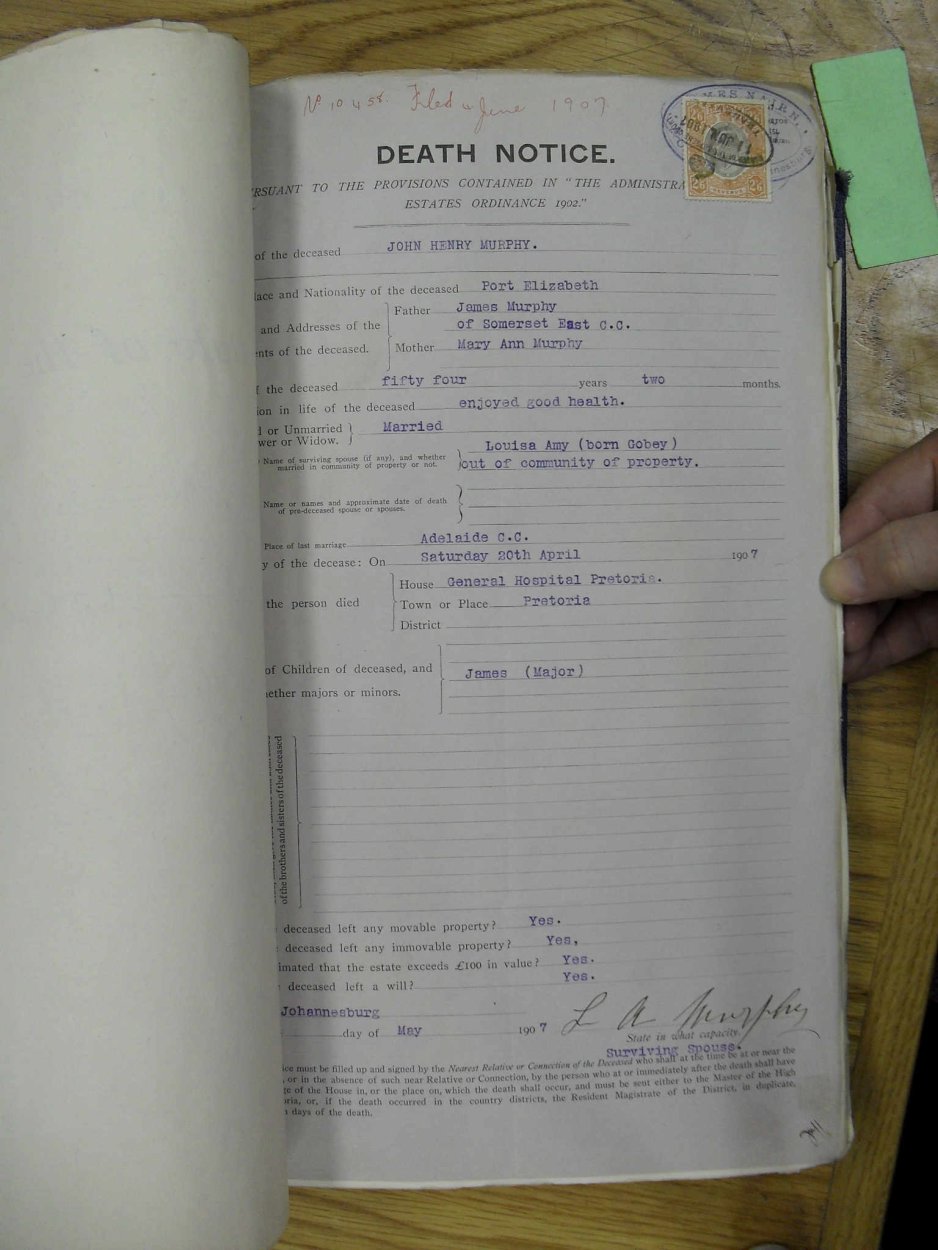 No 10458. Filed June 1907
DEATH NOTICE.
RSUANT TO THE PROVISIONS CONTAINED IN "THE ADMINISTRA
ESTATES ORDINANCE 1902."
of the deceased JOHN HENRY MURPHY.
lace and Nationality of the deceased Port Elizabeth
Father James Murphy
and Addresses of the of Somerset East C.C.
nts of the deceased. Mother Mary Ann Murphy
f the deceased fifty four years two months.
ion in life of the deceased enjoyed good health.
d or Unmarried Married
wer or Widow.
Name of surviving spouse (if any), and whether married in community of property or not. Louisa Amy (born Gobey)
out of community of property.
Name or names and approximate date of death
of pre-deceased spouse or spouses.
Place of last marriage Adelaide C.C.
y of the decease: On Saturday 20th April 1907
House General Hospital Pretoria.
the person died Town or Place Pretoria
District
of Children of deceased, and James (Major)
ether majors or minors.
of the brothers and sisters of the deceased
deceased left any movable property? Yes.
deceased left any immovable property? Yes,
imated that the estate exceeds £100 in value? Yes.
deceased left a will? Yes.
Johannesburg
day of May 1907 L A Murphy
State in what capacity.
Surviving Spouse.
ice must be filled up and signed by the Nearest Relative or Connection of the Deceased who shall at the time be at or near the
, or in the absence of such near Relative or Connection, by the person who at or immediately after the death shall have
ge of the House in, or the place on, which the death shall occur, and must be sent either to the Master of the High
ria, or, if the death occurred in the country districts, the Resident Magistrate of the District, in duplicate,
n days of the death.